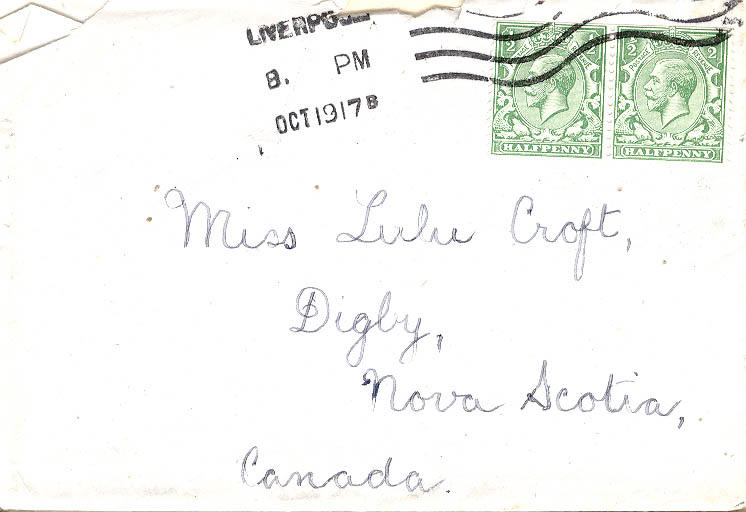 LIVERPOOL
8. PM
OCT 19 17 B
1/2 1/2
POSTAGE REVENUE
HALFPENNY
2
POSTAGE REVENUE
HALFPENNY
Miss Lulu Croft,
Digby,
Nova Scotia,
Canada.